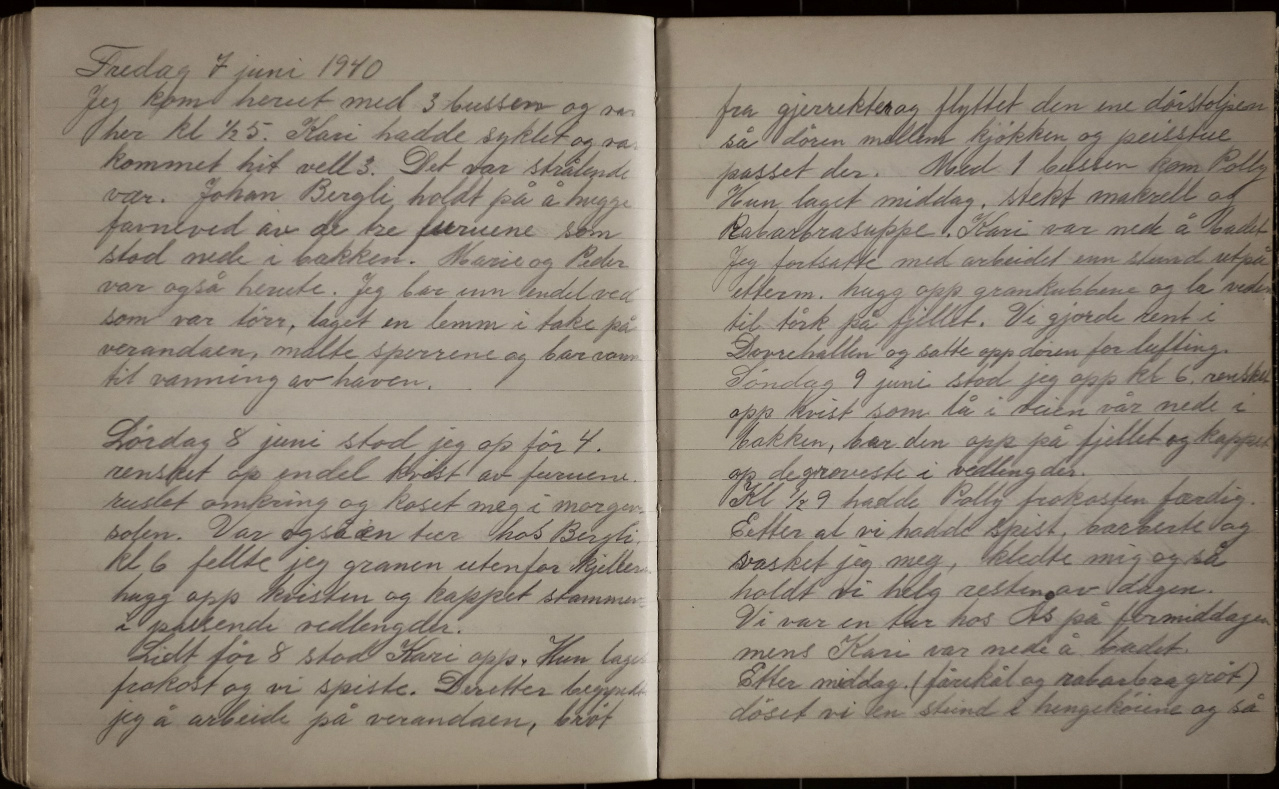 Fredag 7 juni 1940
Jeg kom herut med 3 bussen og var
her kl ½ 5. Kari hadde syklet og var
kommet hit vell 3. Det var strålende
vær. Johan Bergli holdt på å hugge
favneved av de tre furuene som
stod nede i bakken. Marie og Peder
var også herute. Jeg bar inn endel ved
som var törr, laget en lemm i take på
verandaen, malte sperrene og bar vann
til vanning av haven.
Lördag 8 juni stod jeg op för 4.
rensket op endel kvist av furuene.
ruslet omkring og koset meg i morgen
solen. Var også en tur hos Bergli.
kl 6 fellte jeg granen utenfor
hugg opp kvisten og kappet stammen
i passende vedlengder.
Lidt för 8 stod Kari opp. Hun laget
frokost og vi spiste. Deretter begyndte
jeg å arbeide på verandaen, bröt
fra og flyttet den ene
så dören mellem kjökken og peisstue
passet der. Med 1 bussen kom Polly
Hun laget middag, stekt makrell og
Rabarbrasuppe. Kari var nede å badet
Jeg fortsatte med arbeidet enn stund utpå
etterm. hugg opp grankubbene og la veden
til törk på fjellet. Vi gjorde rent i
Dovrehallen og satte opp dören for lufting.
Söndag 9 juni stod jeg opp kl 6, rensket
opp kvist som lå i veien vår nede i
bakken, bar den opp på fjellet og kappet
op de groveste i vedlengder.
Kl ½ 9 hadde Polly frokosten færdig.
Eetter at vi hadde spist, barberte og
vasket jeg meg, kledte mig og så
holdt vi helg resten av dagen.
Vi var en tur hos Ås på formiddagen
mens Kari var nede å badet.
Etter middag. (fårekål og rabarbragröt)
döset vi en stund i hengeköiene og så